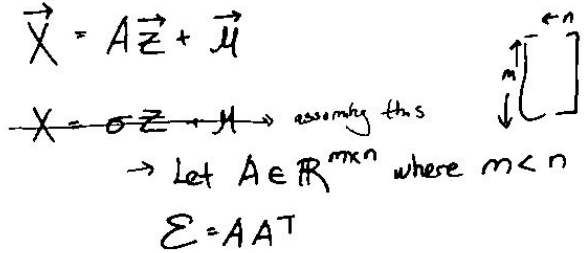 X⃗ = AZ⃗ + μ⃗
← n
m
X = σZ + μ → assuming this
→ Let A ∈ ℝ^{m×n} where m < n
Σ = AA^T